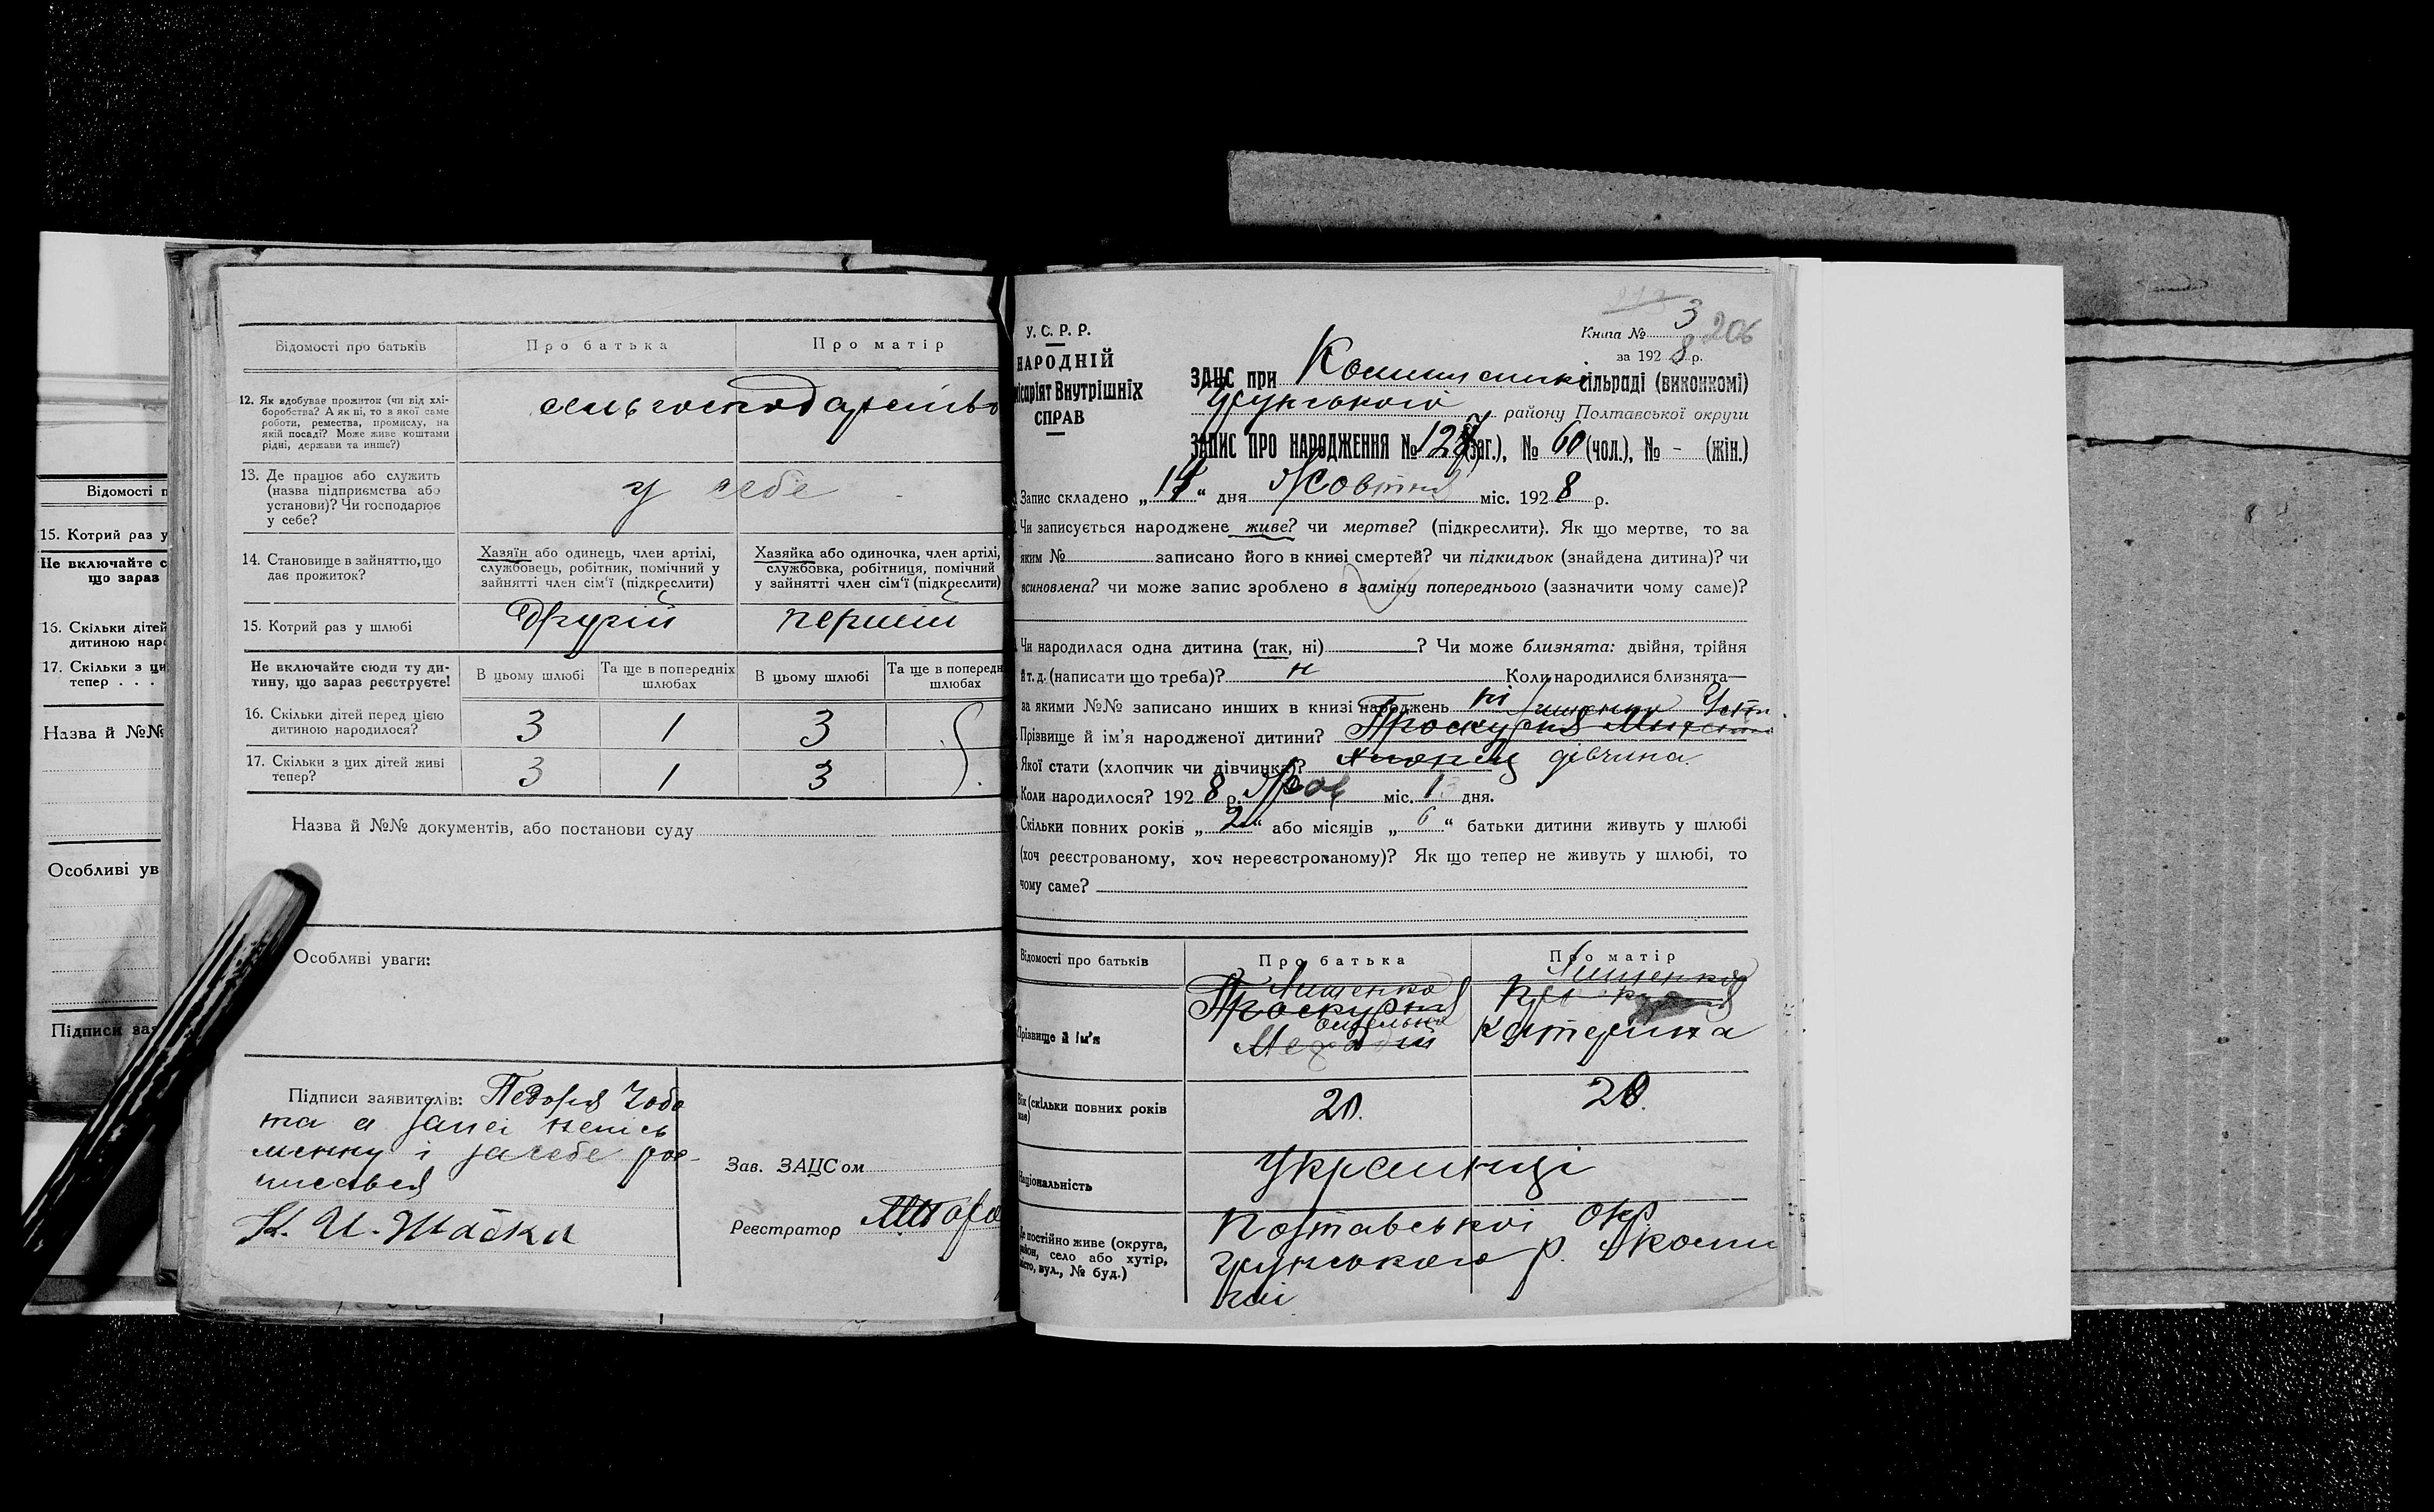 Відомості п
15. Котрий раз у
Не включайте с
що зараз
16. Скільки дітей
дитиною наро
17. Скільки з ци
тепер . . .
Назва й №№
Особливі ув
Підписи зая
Відомості про батьків
Про батька
Про матір
12. Як здобуває прожиток (чи від хлі-
боробства? А як ні, то з якої саме
роботи, ремества, промислу, на
якій посаді? Може живе коштами
рідні, держави та инше?)
сільгосподарство
13. Де працює або служить
(назва підприємства або
установи)? Чи господарює
у себе?
у себе
14. Становище в зайняттю, що
дає прожиток?
Хазяїн або одинець, член артілі,
службовець, робітник, помічний у
зайнятті член сім'ї (підкреслити)
Хазяйка або одиночка, член артілі,
службовка, робітниця, помічний
у зайнятті член сім'ї (підкреслити)
15. Котрий раз у шлюбі
другий
перший
Не включайте сюди ту ди-
тину, що зараз реєструєте!
В цьому шлюбі
Та ще в попередніх
шлюбах
В цьому шлюбі
Та ще в попередн
шлюбах
16. Скільки дітей перед цією
дитиною народилося?
3 1 3
17. Скільки з цих дітей живі
тепер?
3 1 3
Назва й №№ документів, або постанови суду
Особливі уваги:
Підписи заявителів:
та а за неї непись
менну і за себе рос-
писався
Зав. ЗАЦСом
Реєстратор
У. С. Р. Р.
НАРОДНІЙ
місаріят Внутрішніх
СПРАВ
Книга № 3
206
за 1928 р.
ЗАЦС при сільраді (виконкомі)
Грунського району Полтавської округи
ЗАПИС ПРО НАРОДЖЕННЯ № (заг.), № 60 (чол.), № - (жін.)
Запис складено „ “ дня Жовтня міс. 1928 р.
Чи записується народжене живе? чи мертве? (підкреслити). Як що мертве, то за
яким № записано його в книзі смертей? чи підкидьок (знайдена дитина)? чи
всиновлена? чи може запис зроблено в заміну попереднього (зазначити чому саме)?
Чи народилася одна дитина (так, ні) ? Чи може близнята: двійня, трійня
й т. д. (написати що треба)? н Коли народилися близнята—
за якими №№ записано инших в книзі народжень ні
Прізвище й ім'я народженої дитини? Проскурня
Якої стати (хлопчик чи дівчинка)? дівчина
Коли народилося? 1928 р. міс. дня.
Скільки повних років „ 2 “ або місяців „ 6 “ батьки дитини живуть у шлюбі
(хоч реєстрованому, хоч нереєстрованому)? Як що тепер не живуть у шлюбі, то
чому саме?
Відомості про батьків
Про батька
Про матір
Прізвище й ім'я
Лищенко
Проскурня
Лищенкова
Катерина
Вік (скільки повних років
має)
Національність
Українці
Де постійно живе (округа,
район, село або хутір,
місто, вул., № буд.)
Полтавської окр
Грунського р.